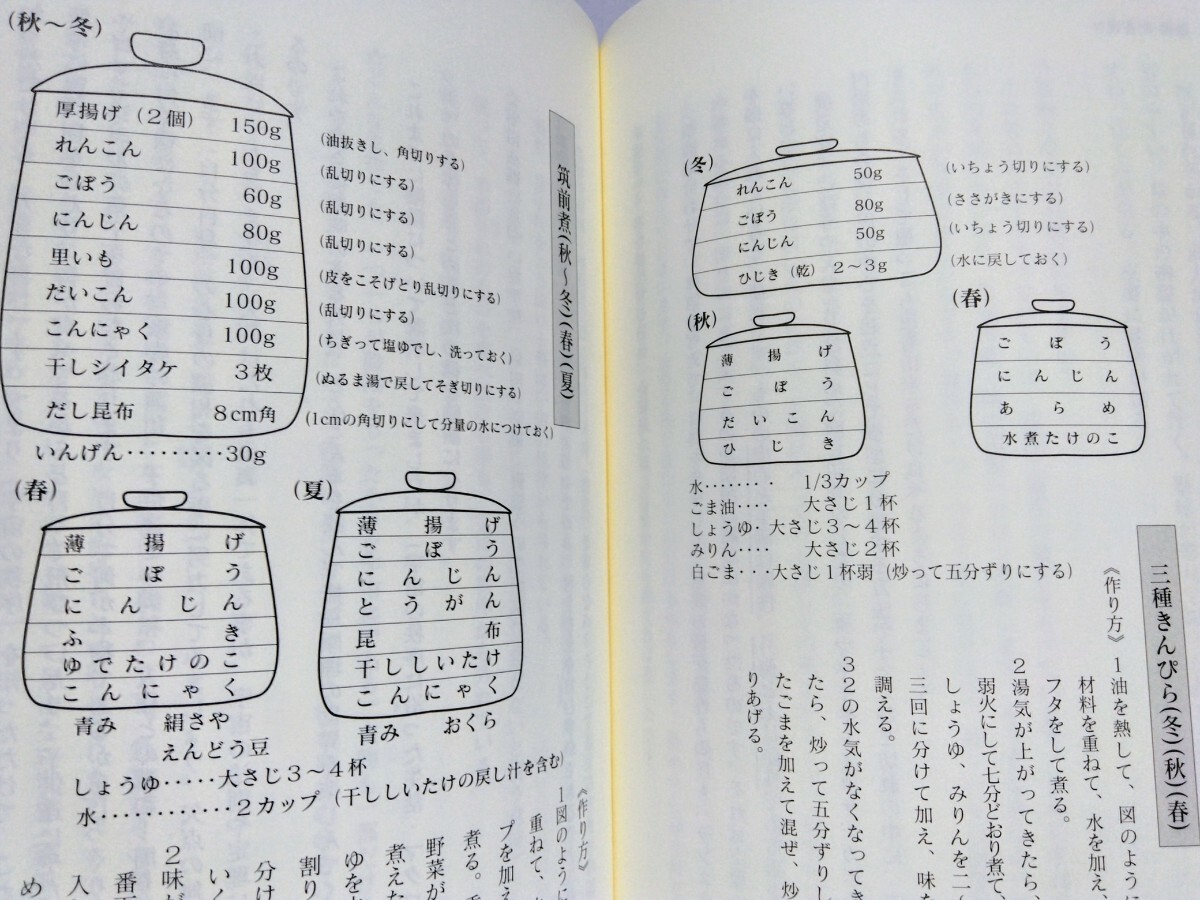 (秋〜冬)
厚揚げ(2個) 150g
れんこん 100g
ごぼう 60g
にんじん 80g
里いも 100g
だいこん 100g
こんにゃく 100g
干しシイタケ 3枚
だし昆布 8cm角
(油抜きし、角切りする)
(乱切りにする)
(乱切りにする)
(乱切りにする)
(皮をこそげとり乱切りにする)
(乱切りにする)
(ちぎって塩ゆでし、洗っておく)
(ぬるま湯で戻してそぎ切りにする)
(1cmの角切りにして分量の水につけておく)
いんげん·········30g
筑前煮(秋〜冬)(春)(夏)
(春)
薄揚げ
ごぼう
にんじん
ふき
ゆでたけのこ
こんにゃく
青み 絹さや
えんどう豆
(夏)
薄揚げ
ごぼう
にんじん
とうがん
昆布
干ししいたけ
こんにゃく
青み おくら
しょうゆ·····大さじ3〜4杯
水···········2カップ(干ししいたけの戻し汁を含む)
《作り方》
1図のように
重ねて、
プを加え
煮る。
野菜が
煮えた
ゆを
割り
分け
いく
2味が
番下
入
め
(冬)
れんこん 50g
ごぼう 80g
にんじん 50g
ひじき(乾) 2〜3g
(いちょう切りにする)
(ささがきにする)
(いちょう切りにする)
(水に戻しておく)
(秋)
薄揚げ
ごぼう
だいこん
ひじき
(春)
ごぼう
にんじん
あらめ
水煮たけのこ
水········ 1/3カップ
ごま油···· 大さじ1杯
しょうゆ· 大さじ3〜4杯
みりん···· 大さじ2杯
白ごま···大さじ1杯弱(炒って五分ずりにする)
三種きんぴら(冬)(秋)(春)
《作り方》
1油を熱して、図のように
材料を重ねて、水を加え、
フタをして煮る。
2湯気が上がってきたら、
弱火にして七分どおり煮て、
しょうゆ、みりんを二(
三回に分けて加え、味を
調える。
32の水気がなくなってき
たら、炒って五分ずりし
たごまを加えて混ぜ、炒
りあげる。